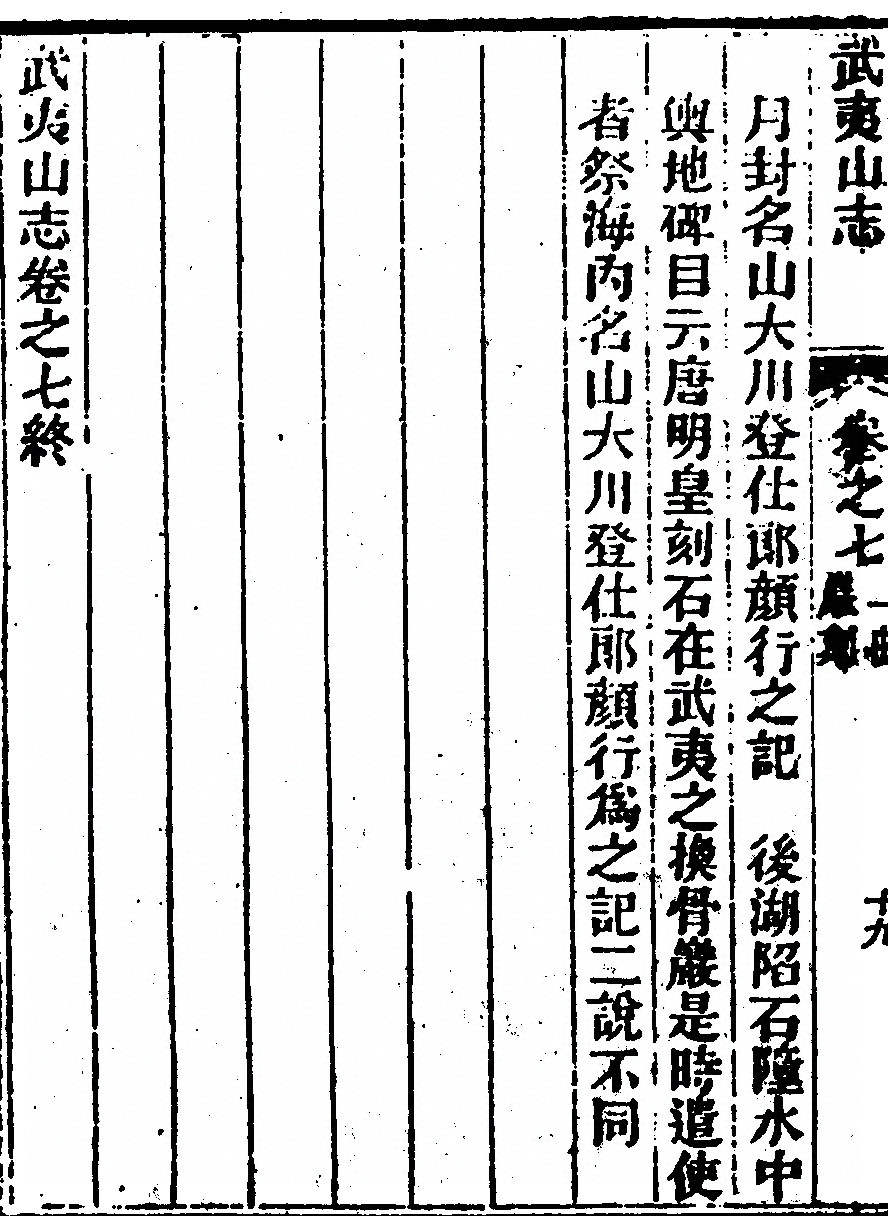 武夷山志
卷之七
十九
月封名山大川登仕郎顏行之記　後湖陷石墮水中
輿地碑目云唐明皇刻石在武夷之換骨巖是時遣使
者祭海內名山大川登仕郎顏行爲之記二說不同
武夷山志卷之七終